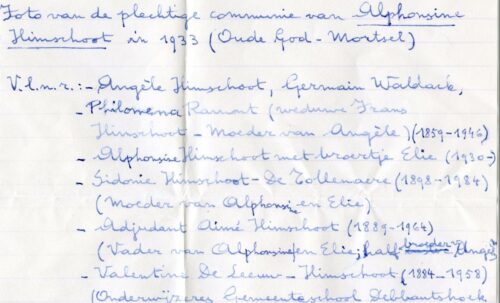 Foto van de plechtige communie van Alphonsine
Himschoot in 1933 (Oude God - Mortsel)
V.l.n.r.: - Angèle Himschoot, Germain Waldack,
- Philomena Ramont (weduwe Frans
Himschoot - Moeder van Angèle) (1859-1946)
- Alphonsine Himschoot met broertje Elie (1930-)
- Sidonie Himschoot - De Tollenaere (1898-1984)
(Moeder van Alphonsine en Elie)
- Adjudant Aimé Himschoot (1889-1964)
(Vader van Alphonsine en Elie; half broeder v. Angè
- Valentine De Leeuw - Himschoot (1884-1958)
(Onderwijzeres Gemeenteschool Debbautshoek